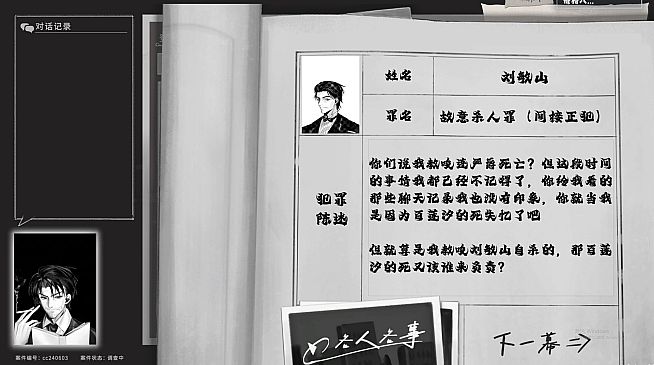 对话记录
姓名
刘敏山
罪名
故意杀人罪（间接正犯）
犯罪
陈述
你们说我教唆 死亡？但这段时间
的事情我都已经不记得了，你给我看的
那些聊天记录我也没有印象，你就当我
是因为百莲汐的死失忆了吧
但就算是我教唆刘敏山自杀的，那百莲
汐的死又该谁来负责？
下一幕
案件编号：cc240603
案件状态：调查中